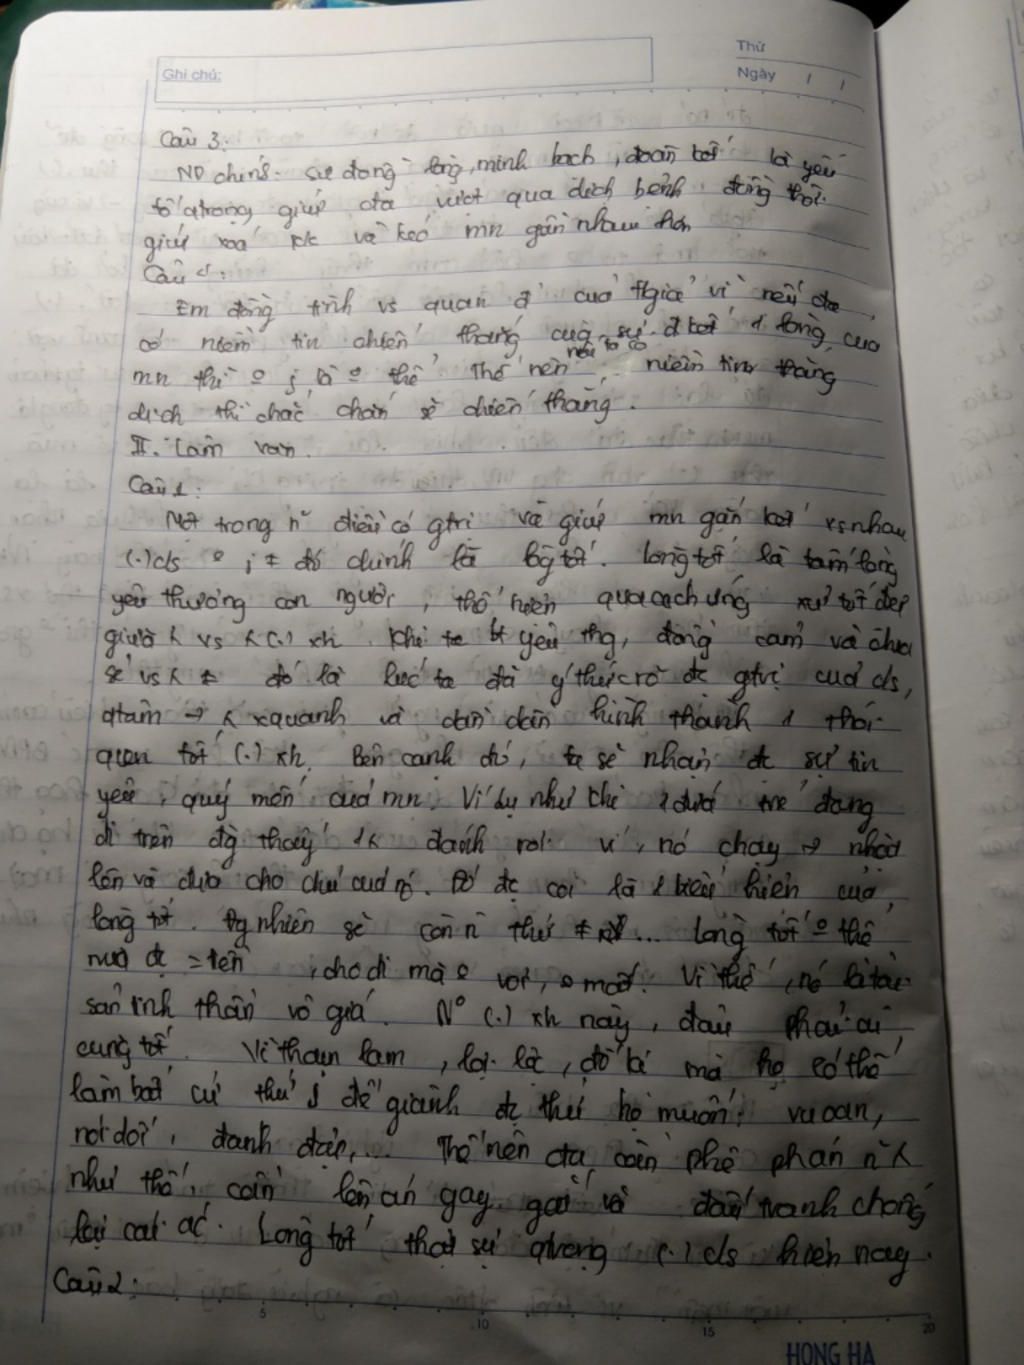 Ghi chú:
Thứ
Ngày / /
Câu 3:
ND chính: sự đồng lòng, minh bạch, đoàn kết là yếu
tố qtrọng giúp cta vượt qua dịch bệnh đồng thời
giúp xoá k/c và kéo mn gần nhau hơn
Câu 4:
Em đồng tình vs quan đ' của tgiả vì nếu cta
có niềm tin chiến thắng cùng sự đ kết 1 lòng của
mn thì o j là o thể Thế nên nếu ta có niềm tin thắng
dịch thì chắc chắn sẽ chiến thắng.
II. Làm văn.
Câu 1:
Một trong n~ điều có gtrị và giúp mn gắn kết vs nhau
(.) c/s o j ≠ đó chính là lòg tốt. Lòng tốt là tấm lòng
yêu thương con người, thể hiện qua cách ứng xử tốt đẹp
giữa ng vs ng (.) xh. Khi ta bt yêu thg, đồng cảm và chia
sẻ vs ng ≠ đó là lúc ta đã ý thức rõ đc gtrị của c/s,
qtâm → ng xquanh và dần dần hình thành 1 thói
quen tốt (.) xh. Bên cạnh đó, ta sẽ nhận đc sự tin
yêu, quý mến của mn. Ví dụ như khi 1 đứa trẻ đang
đi trên đg thấy 1 ng đánh rơi ví, nó chạy → nhặt
lên và đưa cho chú của nó. Đó đc coi là 1 biểu hiện của
lòng tốt. Tg nhiên sẽ còn n thứ ≠ ... Lòng tốt o thể
mua đc = tiền, cho đi mà o vơi, o mất. Vì thế, nó là tài
sản tinh thần vô giá. N° (.) xh này, đâu phải ai
cũng tốt. Vì tham lam, lợi lộc, đố kị mà họ có thể
làm bất cứ thứ j để giành đc thứ họ muốn: vu oan,
nói dối, đánh đập,... Thế nên cta cần phê phán n~ ng
như thế, cần lên án gay gắt và đấu tranh chống
lại cái ác. Lòng tốt thật sự qtrọng (.) c/s hiện nay.
Câu 2:
5 10 15 20
HONG HA